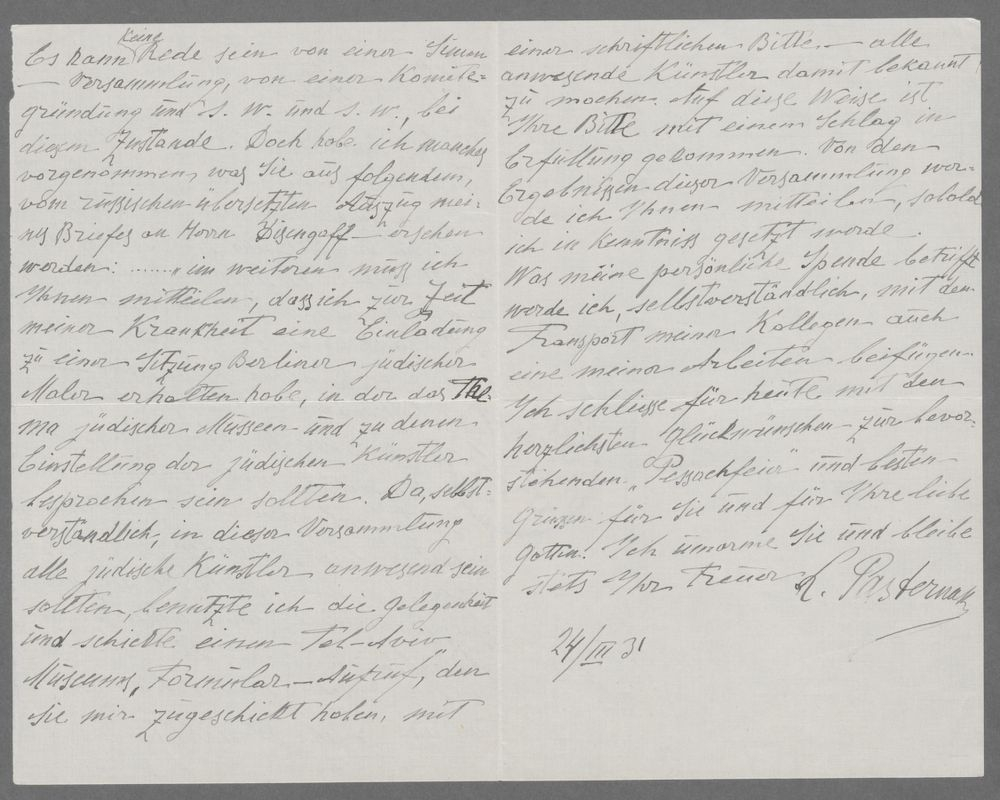 Es kann keine Rede sein von einer
— Versammlung, von einer Komite-
gründung und s. w. und s. w., bei
diesem Zustande. Doch habe ich manches
vorgenommen, was Sie aus folgendem,
vom russischen übersetzten Auszug mei-
nes Briefes an Herrn Disengoff — ersehen
werden: ...... „im weiteren muss ich
Ihnen mitteilen, dass ich zur Zeit
meiner Krankheit eine Einladung
zu einer Sitzung Berliner jüdischer
Maler erhalten habe, in der das The-
ma jüdischer Museen und zu denen
Einstellung der jüdischen Künstler
besprochen sein sollten. Da, selbst-
verständlich, in dieser Versammlung
alle jüdische Künstler anwesend sein
sollten, benutzte ich die Gelegenheit
und schickte einen Tel-Aviv
Museums „Formular-Aufruf", den
Sie mir zugeschickt haben, mit
einer schriftlichen Bitte — alle
anwesende Künstler damit bekannt
zu machen. Auf diese Weise ist
Ihre Bitte mit einem Schlag in
Erfüllung gekommen. Von den
Ergebnissen dieser Versammlung wer-
de ich Ihnen mitteilen, sobald
ich in Kenntniss gesetzt werde.
Was meine persönliche Spende betrifft
werde ich, selbstverständlich, mit dem
Transport meiner Kollegen auch
eine meiner Arbeiten beifügen.
Ich schliesse für heute mit den
herzlichsten Glückwünschen zur bevor-
stehenden „Pessachfeier" und besten
Grüssen für Sie und für Ihre liebe
Gattin. Ich umarme Sie und bleibe
stets Ihr treuer L. Pasternak
24/III 31